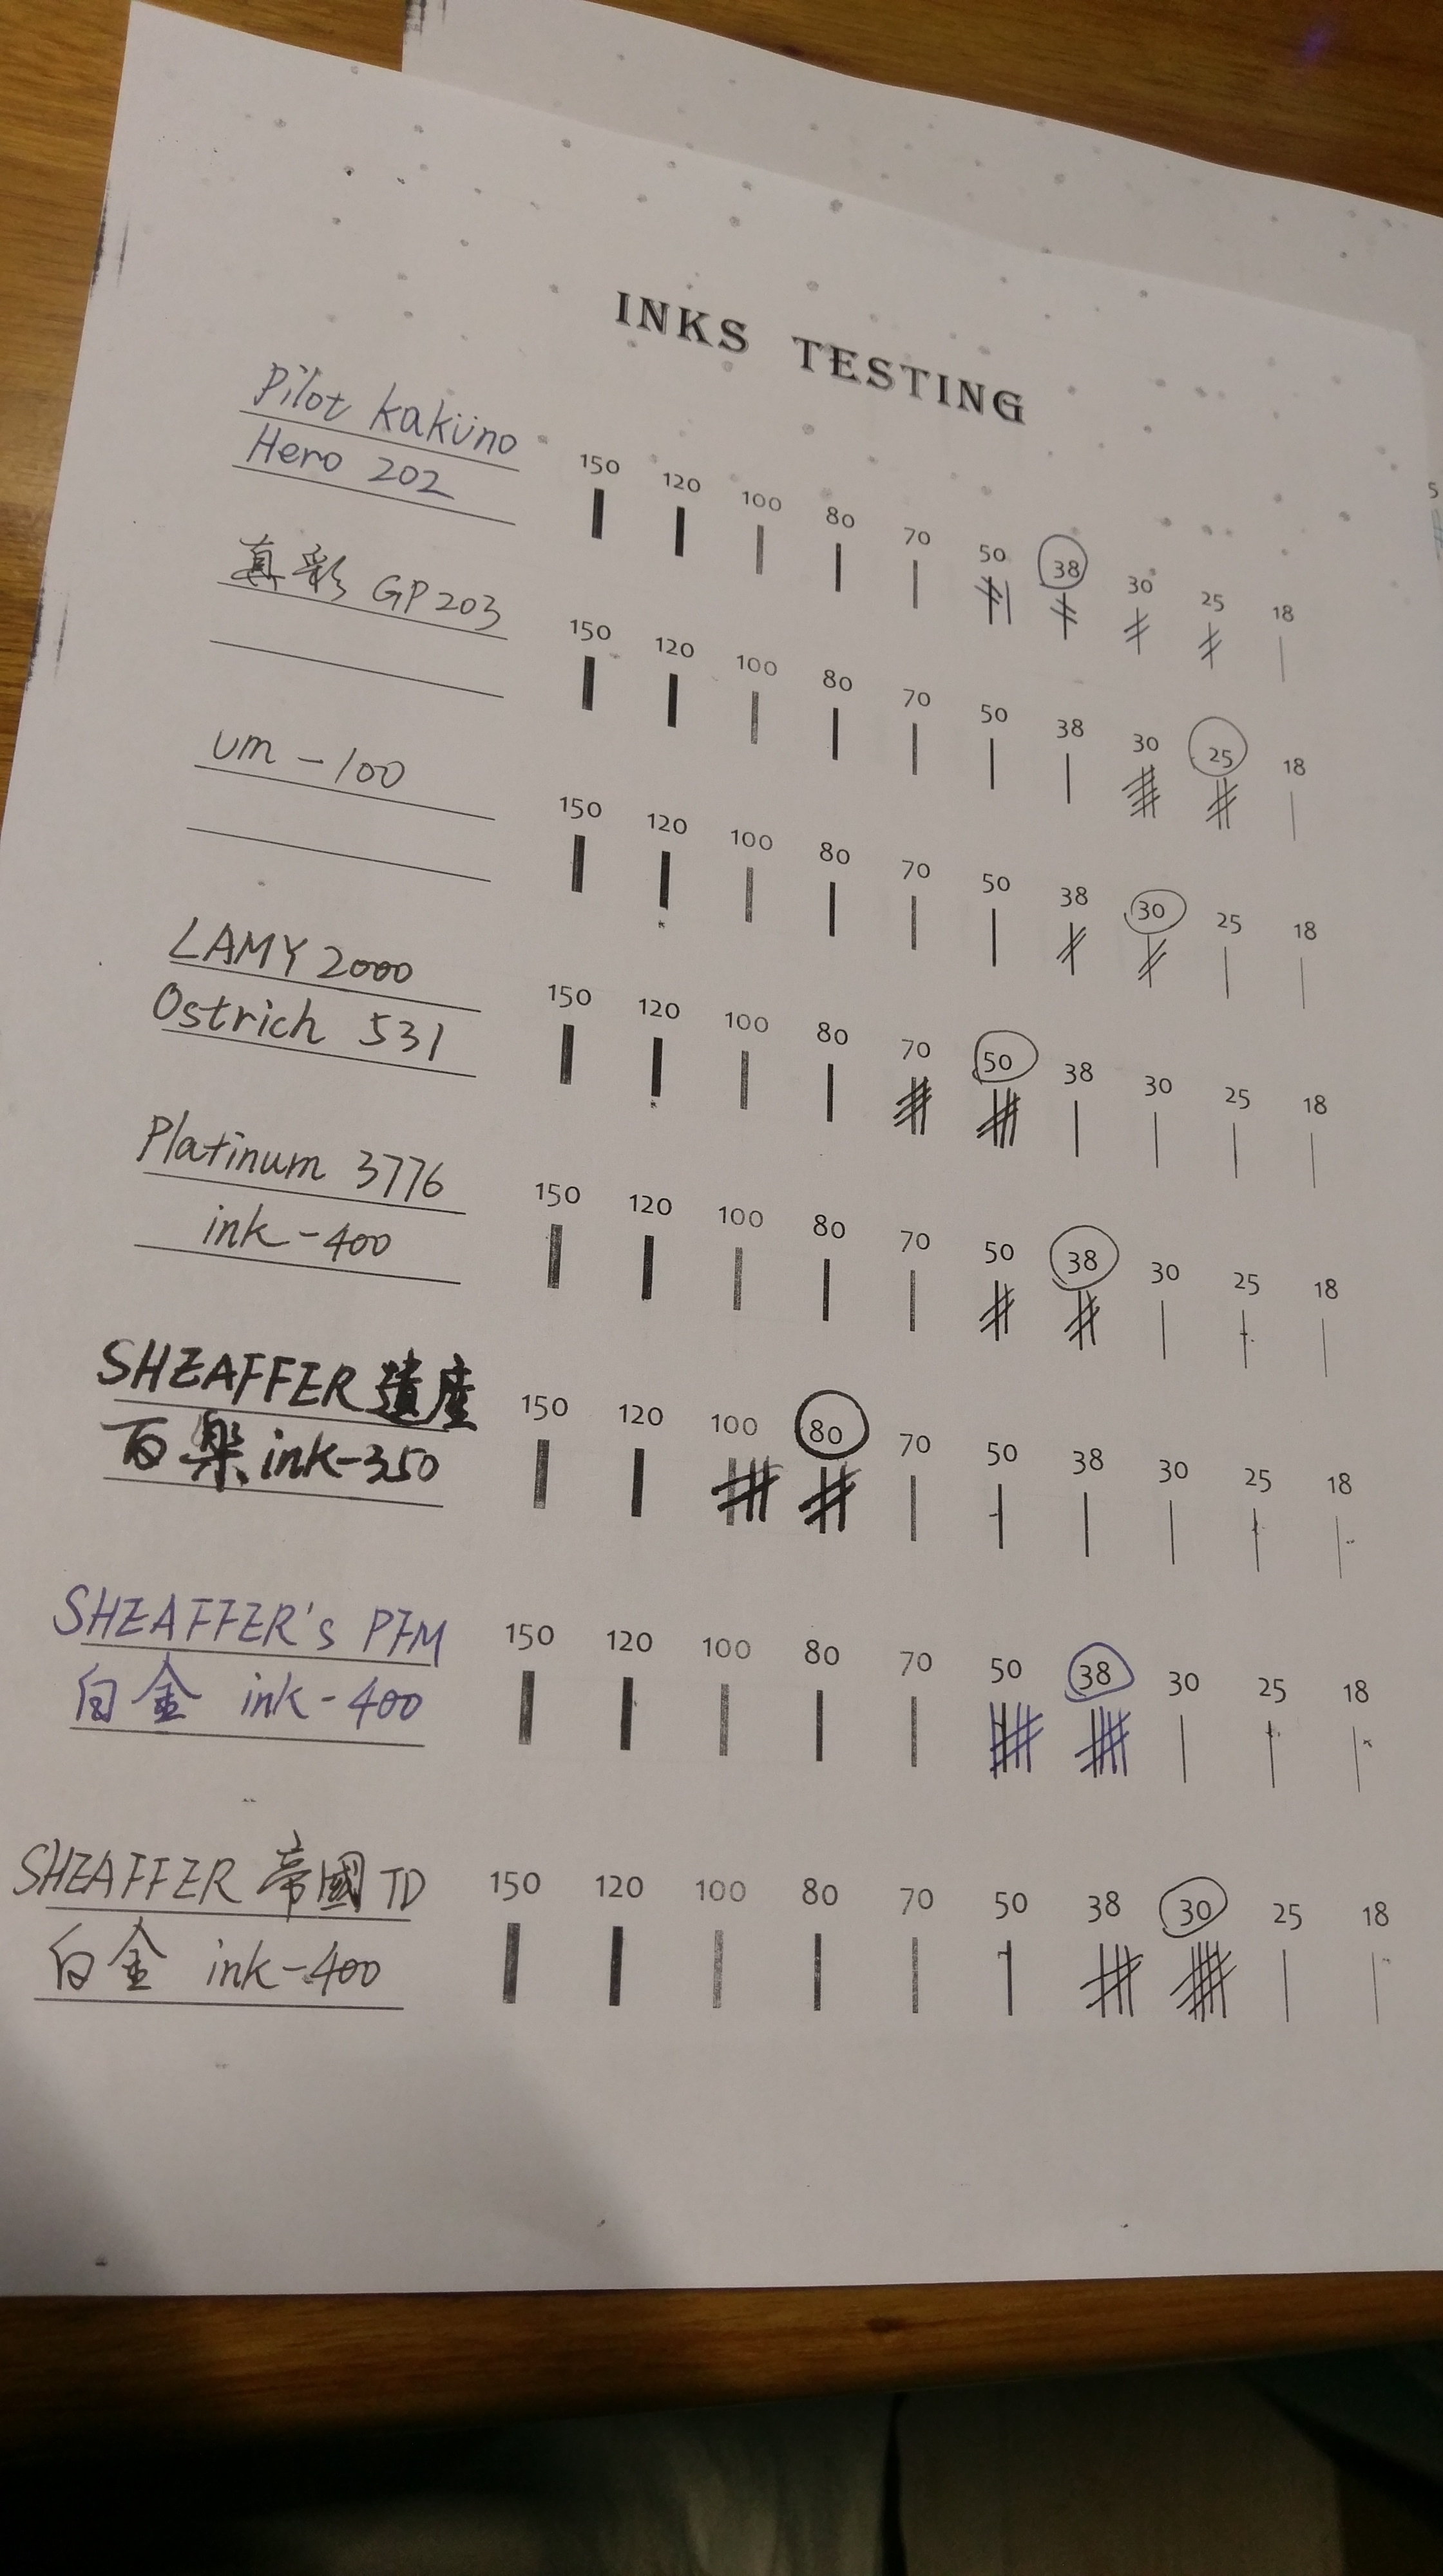 INKS TESTING
Pilot kaküno
Hero 202
150 120 100 80 70 50 38 30 25 18
真彩 GP203
150 120 100 80 70 50 38 30 25 18
um-100
150 120 100 80 70 50 38 30 25 18
LAMY 2000
Ostrich 531
150 120 100 80 70 50 38 30 25 18
Platinum 3776
ink-400
150 120 100 80 70 50 38 30 25 18
SHEAFFER 遺產
百樂 ink-350
150 120 100 80 70 50 38 30 25 18
SHEAFFER's PFM
白金 ink-400
150 120 100 80 70 50 38 30 25 18
SHEAFFER 帝國 TD
白金 ink-400
150 120 100 80 70 50 38 30 25 18